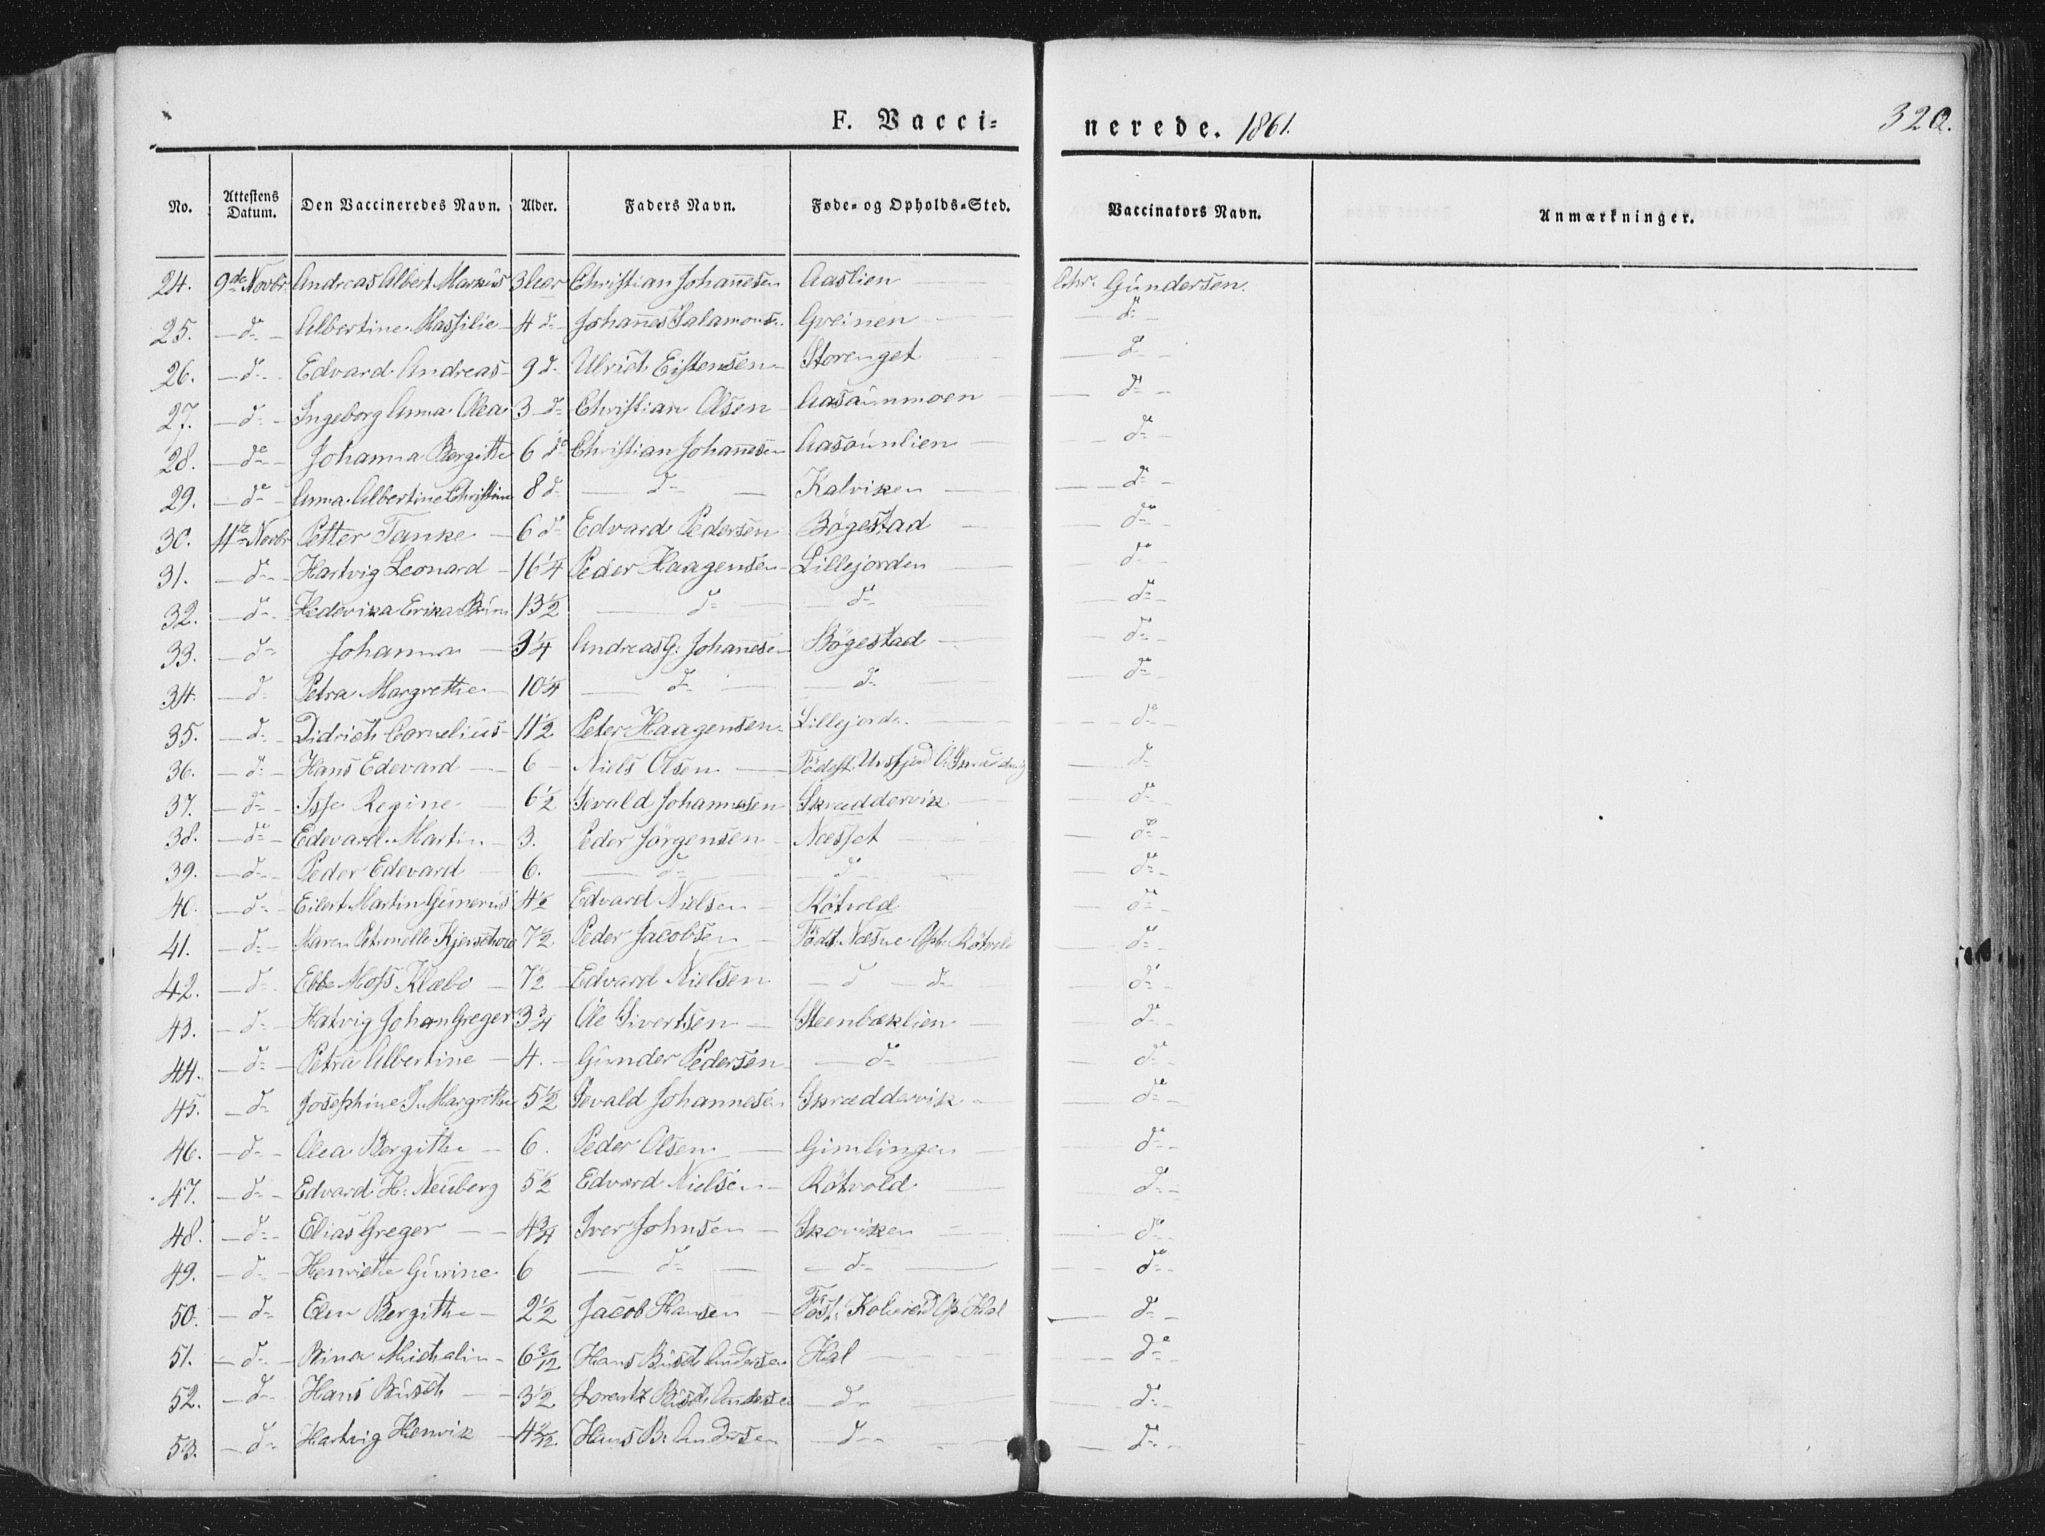 F. Vacci=
nerede. 1861.
320.
No. Attestens Datum. Den Vaccineredes Navn. Alder. Faders Navn. Føde= og Opholds=Sted. Vaccinators Navn. Anmærkninger.
24. 9de Novbr. Andreas Albert Markus 3 Aar Christian Johannesen Aaslien Chr. Gundersen.
25. d° Albertine Massilie 4 d° Johannes Salamons. Greinen d°
26. d° Edvard Andreas 9 d° Ulrich Eistensen Storenget d°
27. d° Ingeborg Anna Olea 3 d° Christian Olsen Aasaunmoen d°
28. d° Johanna Bergitte 6 d° Christian Johannesen Aasounlien d°
29. d° Anna Albertine Christine 8 d° d° Kalviken d°
30. 11te Novbr Petter Tanke 6 d° Edvard Pedersen Bøgestad d°
31. d° Hartvig Leonard 16 1/4 Peder Haagensen Lillejorden d°
32. d° Hedevika Erika Brun 13 1/2 d° d° d°
33. d° Johanna 3 1/4 Andreas G. Johannesen Bøgestad d°
34. d° Petra Margrethe 10 1/4 d° d° d°
35. d° Didrich Cornelius 11 1/2 Peter Haagensen Lillejord. d°
36. d° Hans Edevard 6 Niels Olsen Fødest. d°
37. d° Isse Regine 6 1/2 Sevald Johannesen Skræddervik d°
38. d° Edevard Martin 3. Peder Jørgensen Næsset d°
39. d° Peder Edevard 6. d° d° d°
40. d° Eilert Martin Gunerius 4 1/2 Edvard Nielsen Røtvold d°
41. d° Maren Petronelle 7 1/2 Peder Jacobsen Født Næsne Op. Røtvold d°
42. d° Ebbe Moss Klæbo 7 1/2 Edvard Nielsen d° d° d°
43. d° Hatvig Johan Greger 3 3/4 Ole Sivertsen Steenbæklien d°
44. d° Petra Albertine 4. Gunder Pedersen d° d°
45. d° Josephine J. Margrethe 5 1/2 Sevald Johannesen Skræddervik d°
46. d° Olea Bergithe 6. Peder Olsen Gimlingen d°
47. d° Edvard H. Neuberg 5 1/2 Edvard Nielsen Røtvold d°
48. d° Elias Greger 4 3/4 Iver Johnsen Skoviken d°
49. d° Henriette Gurine 6 d° d° d°
50. d° Elen Bergithe 2 1/2 Jacob Hansen Føst. Op. Hal d°
51. d° Rina Michalin 6 3/12 Hans Busch Andersen Hal d°
52. d° Hans Busch 3 1/2 Lorentz Busch Andersen d° d°
53. d° Hartvig Henrik 4 2/12 Hans B. Andersen d° d°